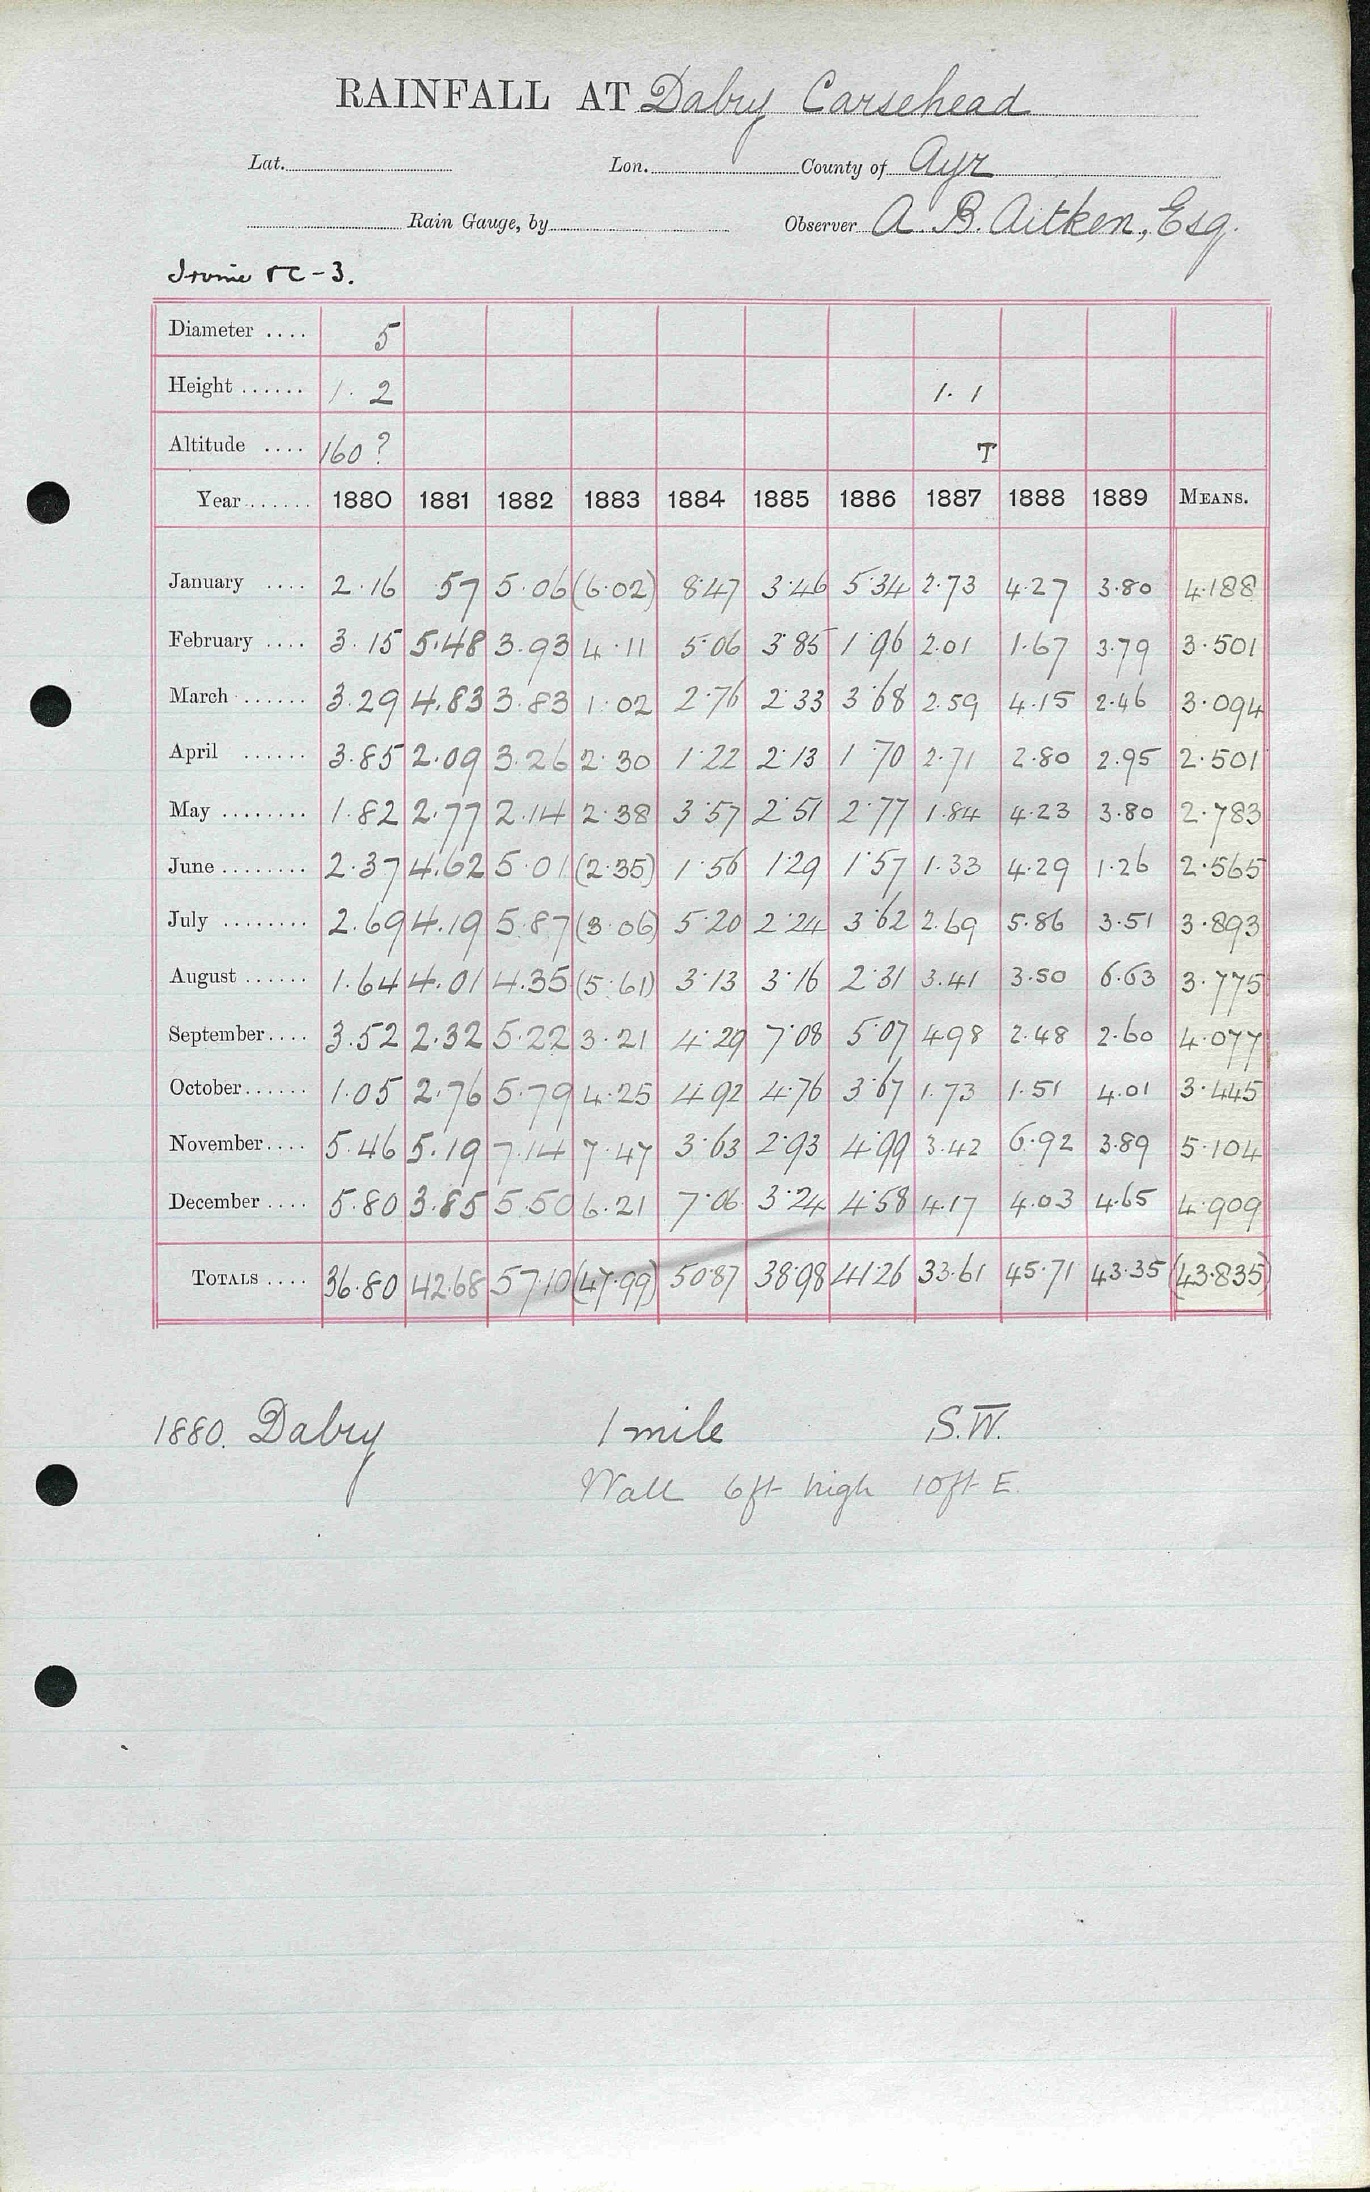 RAINFALL AT Dalry Carsehead
Lat. Lon. County of Ayr
Rain Gauge, by Observer A. B. Aitken, Esq.
Irvine RC-3.
Diameter .... 5
Height ...... 1. 2 1. 1
Altitude .... 160? T
Year ...... 1880 1881 1882 1883 1884 1885 1886 1887 1888 1889 MEANS.
January .... 2.16 .57 5.06 (6.02) 8.47 3.46 5.34 2.73 4.27 3.80 4.188
February .... 3.15 5.48 3.93 4.11 5.06 3.85 1.96 2.01 1.67 3.79 3.501
March ...... 3.29 4.83 3.83 1.02 2.76 2.33 3.68 2.59 4.15 2.46 3.094
April ...... 3.85 2.09 3.26 2.30 1.22 2.13 1.70 2.71 2.80 2.95 2.501
May ........ 1.82 2.77 2.14 2.38 3.57 2.51 2.77 1.84 4.23 3.80 2.783
June ........ 2.37 4.62 5.01 (2.35) 1.56 1.29 1.57 1.33 4.29 1.26 2.565
July ........ 2.69 4.19 5.87 (3.06) 5.20 2.24 3.62 2.69 5.86 3.51 3.893
August ...... 1.64 4.01 4.35 (5.61) 3.13 3.16 2.31 3.41 3.50 6.63 3.775
September .... 3.52 2.32 5.22 3.21 4.29 7.08 5.07 4.98 2.48 2.60 4.077
October ...... 1.05 2.76 5.79 4.25 4.92 4.76 3.67 1.73 1.51 4.01 3.445
November .... 5.46 5.19 7.14 7.47 3.63 2.93 4.99 3.42 6.92 3.89 5.104
December .... 5.80 3.85 5.50 6.21 7.06 3.24 4.58 4.17 4.03 4.65 4.909
TOTALS .... 36.80 42.68 57.10 (47.99) 50.87 38.98 41.26 33.61 45.71 43.35 (43.835)
1880. Dalry 1 mile S.W.
Wall 6ft high 10ft E.